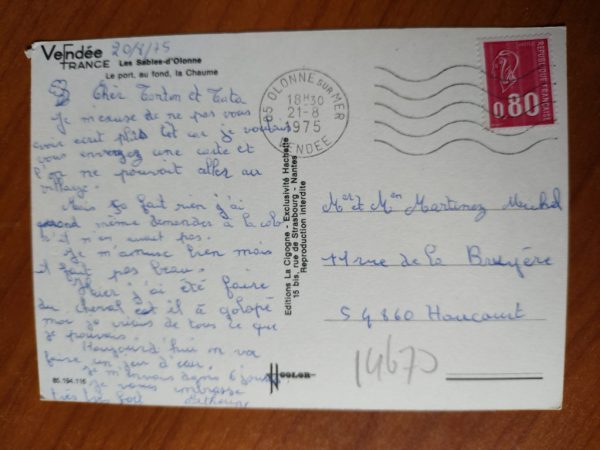 Vendée
FRANCE
20/8/75
Les Sables-d'Olonne
Le port, au fond, la Chaume
Cher Tonton et Tata
Je m'exuse de ne pas vous
avoir écrit plus tot car je voulais
vous envoyez une carte et
l'on ne pouvait aller au
village.
Mais ça fait rien j'ai
quand même demander à la colo
s'il n'en avait pas.
Je m'amuse bien mais
il fait pas beau.
Hier j'ai été faire
du cheval et il à galopé
moi je riais de tous ce que
je pouvais.
Aujourd'hui on va
faire un jeu d'eau.
Je m'envais après 6 jours
je vous embrasse
très très fort
85.194.116
COLOR
Editions La Cigogne - Exclusivité Hachette
15 bis, rue de Strasbourg - Nantes
Reproduction interdite
85 OLONNE SUR MER
18H30
21-8
1975
VENDEE
0,80
REPUBLIQUE FRANÇAISE
Mr et Me Martinez Michel
11 rue de la Bruyère
59860 Honcourt
14670